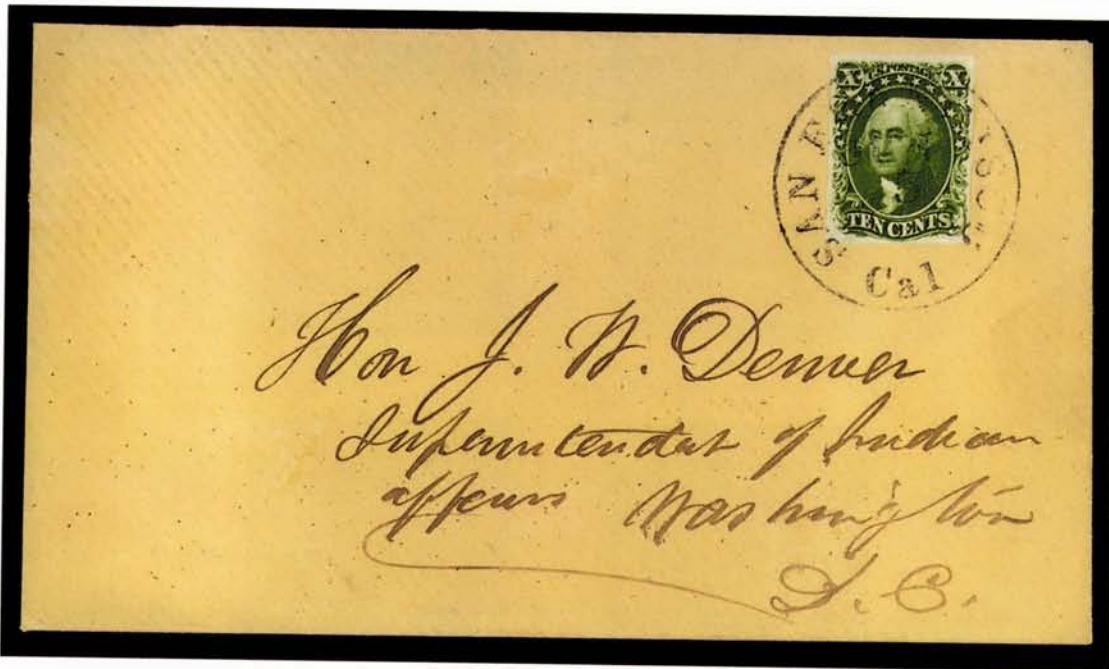 X U.S. POSTAGE X
TEN CENTS.
SAN F ISCO
Cal
Hon J. W. Denver
Superintendat of Indian
affairs Washington
D.C.